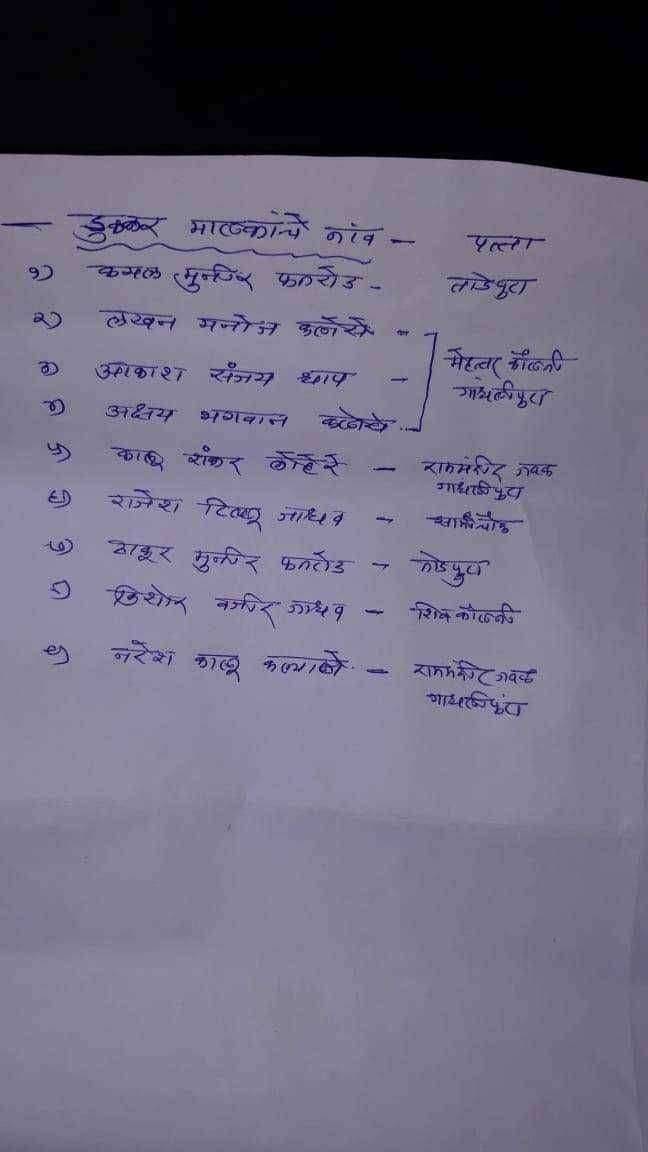 — डुक्कर मालकांचे नांव — पत्ता
१) कमल मुनीर फतरोड - ताडेपुरा
२) लखन मनोज कलोसे -
३) आकाश संजय धाप - मेहतर कॉलनी
गांधलीपुरा
४) अक्षय भगवान कलोसे -
५) कालू शंकर लोहेरे - राममंदीर जवळ
गांधलीपुरा
६) राजेश टिल्लू जाधव -
७) ठाकूर मुनीर फतरोड - ताडेपुरा
८) किशोर वजीर जाधव - शिवकॉलनी
९) नरेश कालू कल्याणे - राममंदीर जवळ
गांधलीपुरा